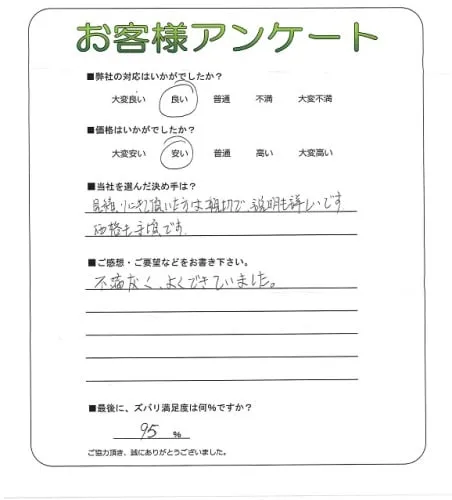 お客様アンケート
■弊社の対応はいかがでしたか?
大変良い 良い 普通 不満 大変不満
■価格はいかがでしたか?
大変安い 安い 普通 高い 大変高い
■当社を選んだ決め手は?
見積りに来て頂いた方は親切で、説明も詳しいです
価格も手頃です。
■ご感想・ご要望などをお書き下さい。
不満なく、よくできていました。
■最後に、ズバリ満足度は何%ですか?
95 %
ご協力頂き、誠にありがとうございました。